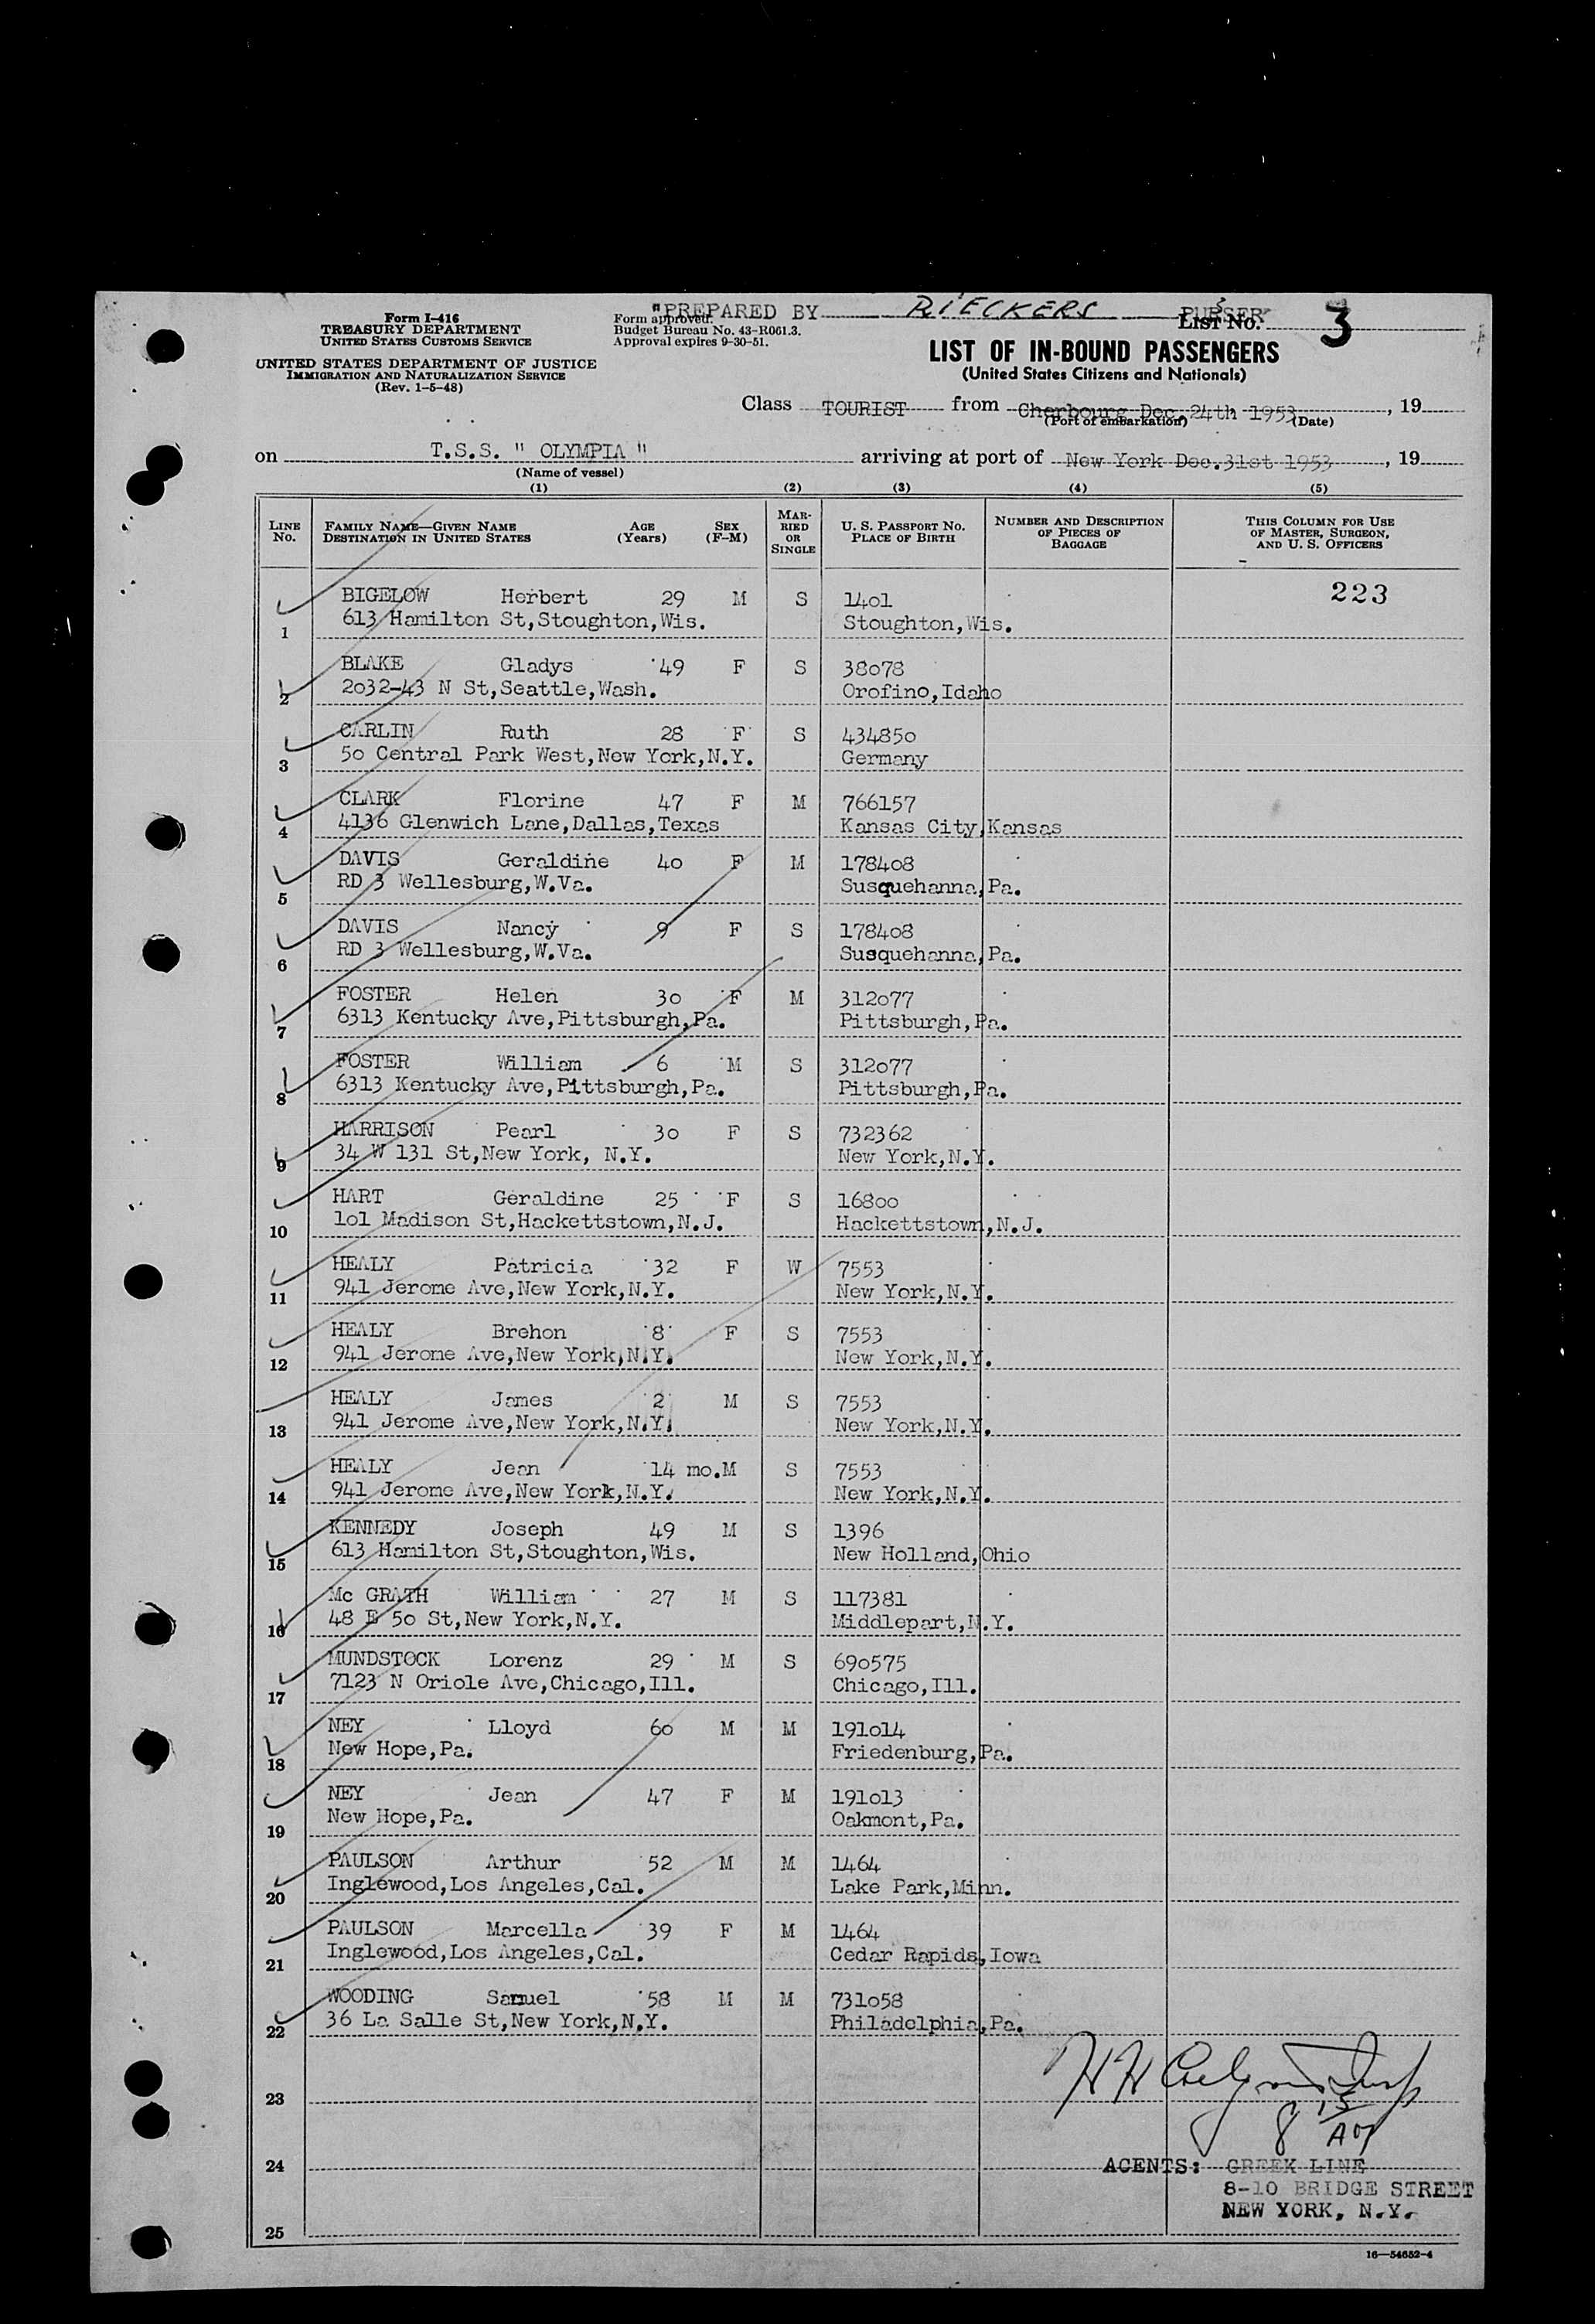 "PREPARED BY RIECKERS PURSER
Form I-416
TREASURY DEPARTMENT
UNITED STATES CUSTOMS SERVICE
UNITED STATES DEPARTMENT OF JUSTICE
IMMIGRATION AND NATURALIZATION SERVICE
(Rev. 1-5-48)
Form approved.
Budget Bureau No. 43-R061.3.
Approval expires 9-30-51.
List No. 3
3
LIST OF IN-BOUND PASSENGERS
(United States Citizens and Nationals)
Class TOURIST from Cherbourg Dec. 24th 1953, 19
(Port of embarkation) (Date)
on T.S.S. " OLYMPIA " arriving at port of New York Dec. 31st 1953, 19
(Name of vessel)
(1) (2) (3) (4) (5)
LINE No. FAMILY NAME—GIVEN NAME DESTINATION IN UNITED STATES AGE (Years) SEX (F-M) MARRIED OR SINGLE U. S. PASSPORT NO. PLACE OF BIRTH NUMBER AND DESCRIPTION OF PIECES OF BAGGAGE THIS COLUMN FOR USE OF MASTER, SURGEON, AND U. S. OFFICERS
223
BIGELOW Herbert 29 M S 14o1
1 613 Hamilton St,Stoughton,Wis. Stoughton,Wis.
BLAKE Gladys 49 F S 38o78
2 2o32-43 N St,Seattle,Wash. Orofino,Idaho
CARLIN Ruth 28 F S 43485o
3 5o Central Park West,New York,N.Y. Germany
CLARK Florine 47 F M 766157
4 4136 Glenwich Lane,Dallas,Texas Kansas City,Kansas
DAVIS Geraldine 4o F M 1784o8
5 RD 3 Wellesburg,W.Va. Susquehanna,Pa.
DAVIS Nancy 9 F S 1784o8
6 RD 3 Wellesburg,W.Va. Susquehanna,Pa.
FOSTER Helen 3o F M 312o77
7 6313 Kentucky Ave,Pittsburgh,Pa. Pittsburgh,Pa.
FOSTER William 6 M S 312o77
8 6313 Kentucky Ave,Pittsburgh,Pa. Pittsburgh,Pa.
HARRISON Pearl 3o F S 732362
9 34 W 131 St,New York, N.Y. New York,N.Y.
HART Geraldine 25 F S 168oo
10 1o1 Madison St,Hackettstown,N.J. Hackettstown,N.J.
HEALY Patricia 32 F W 7553
11 941 Jerome Ave,New York,N.Y. New York,N.Y.
HEALY Brehon 8 F S 7553
12 941 Jerome Ave,New York,N.Y. New York,N.Y.
HEALY James 2 M S 7553
13 941 Jerome Ave,New York,N.Y. New York,N.Y.
HEALY Jean 14 mo. M S 7553
14 941 Jerome Ave,New York,N.Y. New York,N.Y.
KENNEDY Joseph 49 M S 1396
15 613 Hamilton St,Stoughton,Wis. New Holland,Ohio
Mc GRATH William 27 M S 117381
16 48 E 5o St,New York,N.Y. Middlepart,N.Y.
MUNDSTOCK Lorenz 29 M S 69o575
17 7123 N Oriole Ave,Chicago,Ill. Chicago,Ill.
NEY Lloyd 6o M M 191o14
18 New Hope,Pa. Friedenburg,Pa.
NEY Jean 47 F M 191o13
19 New Hope,Pa. Oakmont,Pa.
PAULSON Arthur 52 M M 1464
20 Inglewood,Los Angeles,Cal. Lake Park,Minn.
PAULSON Marcella 39 F M 1464
21 Inglewood,Los Angeles,Cal. Cedar Rapids,Iowa
WOODING Samuel 58 M M 731o58
22 36 La Salle St,New York,N.Y. Philadelphia,Pa.
23
8 15
24
AGENTS: GREEK LINE
8-10 BRIDGE STREET
NEW YORK, N.Y.
25
16—54652-4